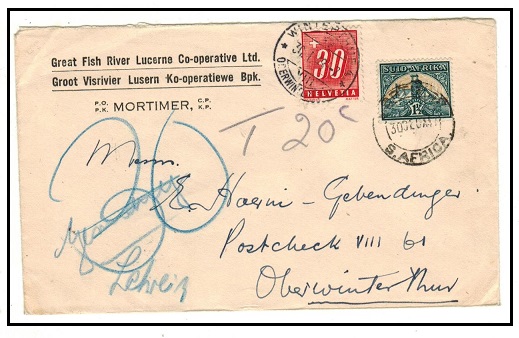 Great Fish River Lucerne Co-operative Ltd.
Groot Visrivier Lusern Ko-operatiewe Bpk.
P.O. MORTIMER, C.P.
P.K. K.P.
30
HELVETIA
SUID-AFRIKA
S. AFRICA.
T 20c
30
Messrs.
E. Haerri-Gebendinger
Postcheck VIII 61
Oberwinterthur